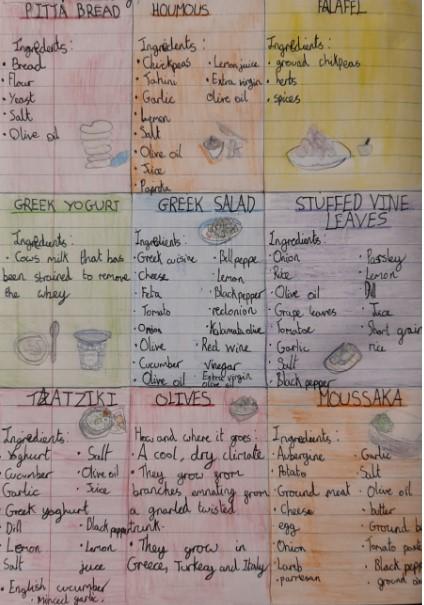 PITTA BREAD
Ingredients:
• Bread
• Flour
• Yeast
• Salt
• Olive oil
HOUMOUS
Ingredients:
• Chickpeas
• Tahini
• Garlic
• Lemon
• Salt
• Olive oil
• Juice
• Paprika
• Lemon juice
• Extra virgin
olive oil
FALAFEL
Ingredients:
• ground chikpeas
• herbs
• spices
GREEK YOGURT
Ingredients:
• Cows milk that has
been strained to remove
the whey
GREEK SALAD
Ingredients:
• Greek cuisine
• Cheese
• Feta
• Tomato
• Onion
• Olive
• Cucumber
• Olive oil
• Bell peppe
• Lemon
• Black pepper
• red onion
• Kalamata olive
• Red wine
vinegar
Extra virgin
olive oil
STUFFED VINE
LEAVES
Ingredients:
• Onion
• Rice
• Olive oil
• Grape leaves
• Tomatoe
• Garlic
• Salt
• Black pepper
• Parsley
• Lemon
• Dill
• Juice
• Short grain
rice
TZATZIKI
Ingredients:
• Yoghurt
• Cucumber
Garlic
• Greek yoghurt
• Dill
• Lemon
Salt
• English cucumber
• Salt
• Olive oil
• Juice
• Black pepper
• Lemon
juice
• minced garlic
OLIVES
How and where it grows:
• A cool, dry climate
• They grow from
branches, emnating from
a gnarled twisted
trunk.
• They grow in
Greece, Turkey and Italy
MOUSSAKA
Ingredients:
• Aubergine
• Potato
• Ground meat
• Cheese
• egg
• Onion
• Lamb
• parmesan
• Garlic
• Salt
• Olive oil
• butter
• Ground b
• Tomato paste
• Black pepp
• ground